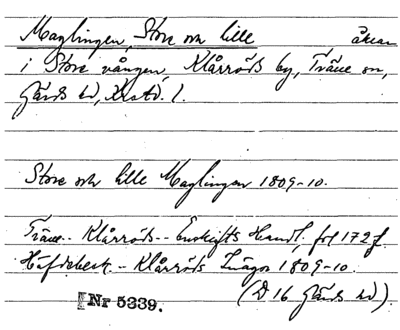 Maglingen, Store och lille åkrar
i Store vången, Klårröds by, Träne sn,
Gärds hd, Krstd. l.
Store och lille Maglingen 1809-10.
Träne-- Klårröds-- Enskifts Handl. fol 172 f.
Häfdebesk.- Klårröds Ägor 1809-10.
(D 16 Gärds hd).
Nr 5339.